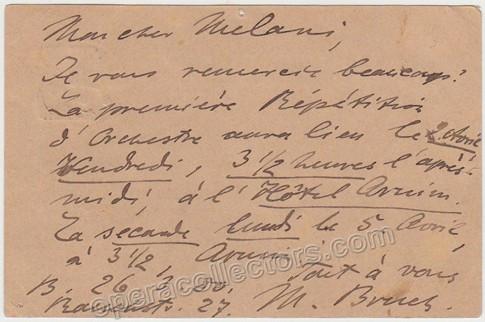 Mon cher Melani,
Je vous remercie beaucoup!
La première Répétition
d'Orchestre aura lieu le 2 Avril
Vendredi, 3 1/2 heures l'après-
midi, à l'Hôtel Arnim.
La seconde lundi le 5 Avril
à 3 1/2, Arnim.
Tout à vous
B. 26. 3.
27. M. Bruch.
operacollectors.com